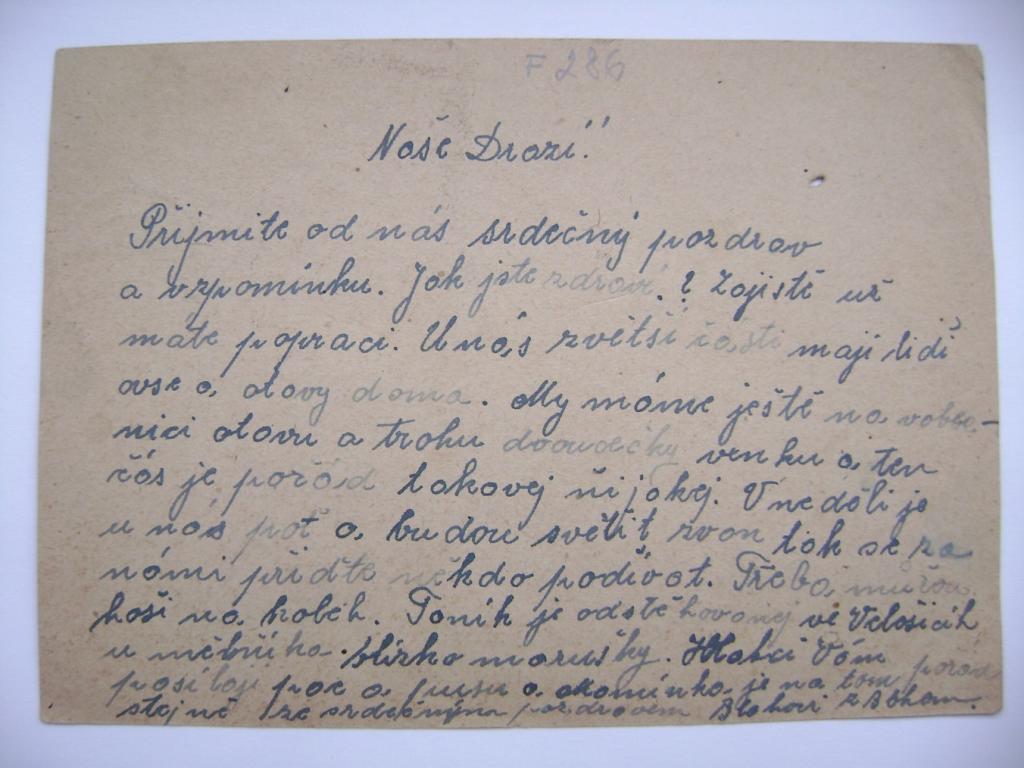 F 286
Naše Drazí!
Přijmite od nás srdečný pozdrav
a vzpomínku. Jak jste zdraví.? Zajistě už
mate popraci. U nás zvětší časti maji lidi
ovse a otavy doma. My máme ještě na vobec-
nici otavu a trohu dvouděčky venku a ten
čás je pořád takovej nijakej. V neděli je
u nás pať a budou světit zvon tak se za
námi přiďte někdo podivat. Třeba mužou
hoši na kolech. Toník je odstěhovanej ve Velošicih
u mělníka. blízko marušky. Vám
posílaji pac a pusu a maminka je na tom pořád
stejně se srdečnym pozdravem